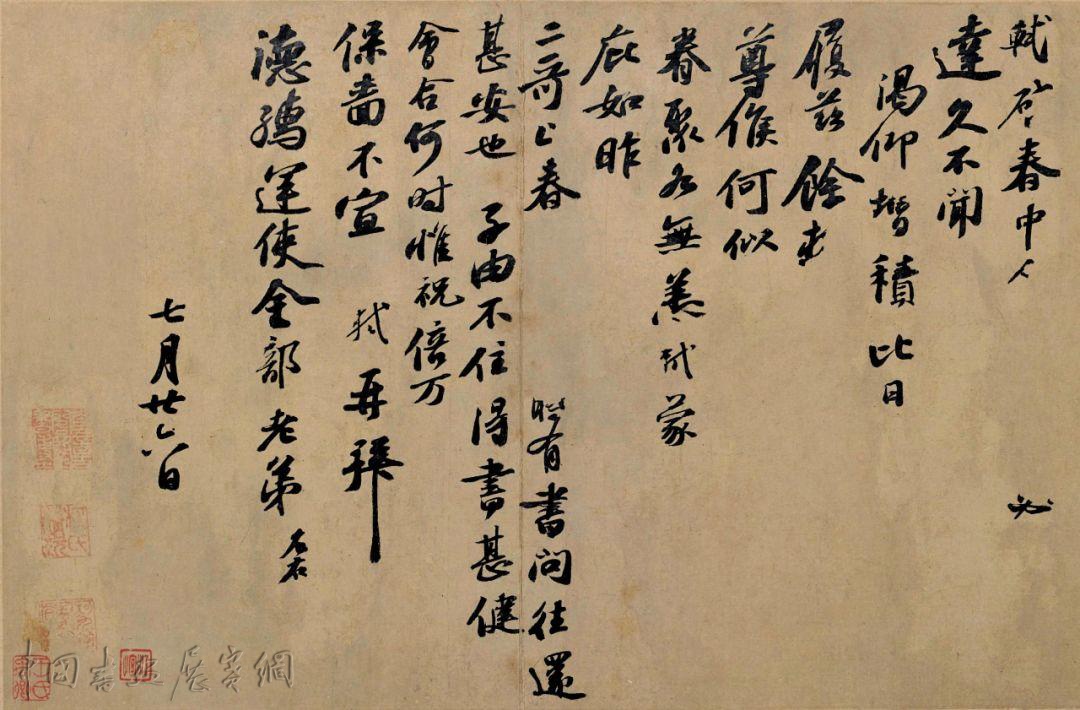 軾啓春中 必
達久不聞
渴仰增積比日
履茲餘熱
尊候何似
眷聚各無恙軾蒙
庇如昨
二哥上春 時有書問往還
甚安也子由不住得書甚健
會合何時惟祝倍万
保嗇不宣 軾再拜
德孺運使金部老弟 左右
七月廿六日
中國書畫展賽網